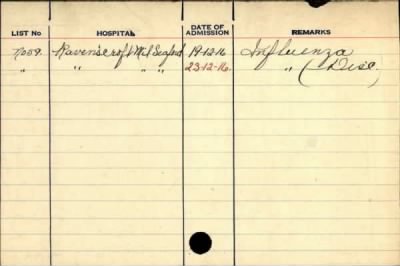 LIST No HOSPITAL DATE OF ADMISSION REMARKS
Ravenscroft Mil Seaford 19-12-16 Influenza
" " " " 23-12-16. " (Disc)